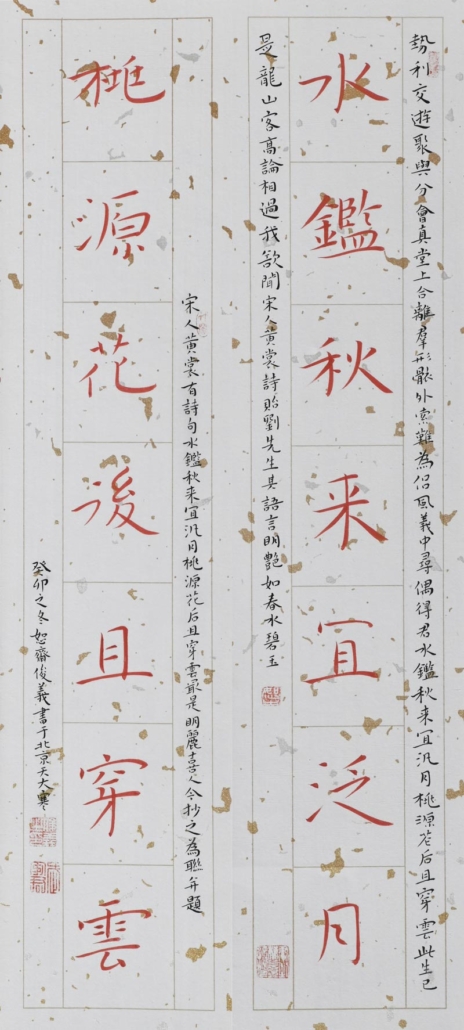 勢利交遊聚與分會真堂上合離羣形骸外索難為侶風義中尋偶得君水鑑秋来宜汎月桃源花后且穿雲此生已
水鑑秋来宜泛月
是龍山客高論相過我欲聞宋人黃裳詩貽劉先生其語言明艷如春水碧玉
宋人黃裳有詩句水鑑秋来宜汎月桃源花后且穿雲最是明麗喜人今抄之為聯并題
桃源花後且穿雲
癸卯之冬恕齋俊義書于北京天大寒